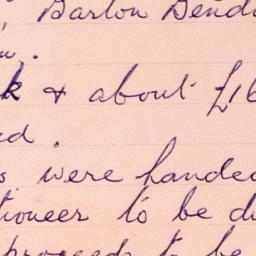 Barton Bend
k & about £16
ed.
s were handed
tioneer to be d
proceeds to be